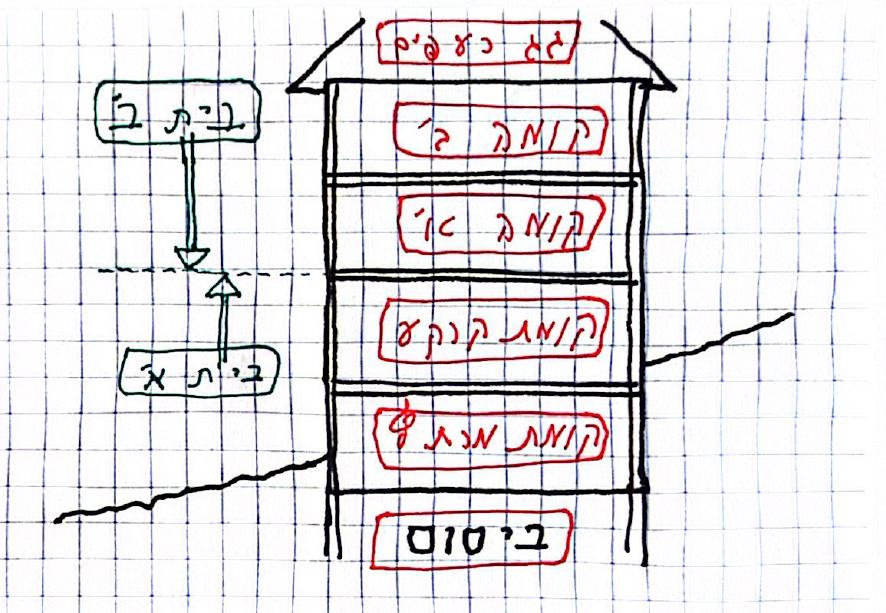 גג רעפים
בית ב'
קומה ב'
קומה א'
קומת קרקע
בית א'
קומת מרתף
ביסוס